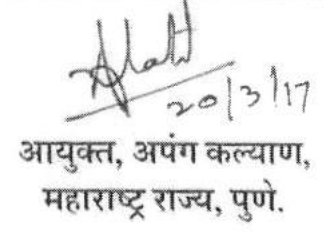 20/3/17
आयुक्त, अपंग कल्याण,
महाराष्ट्र राज्य, पुणे.